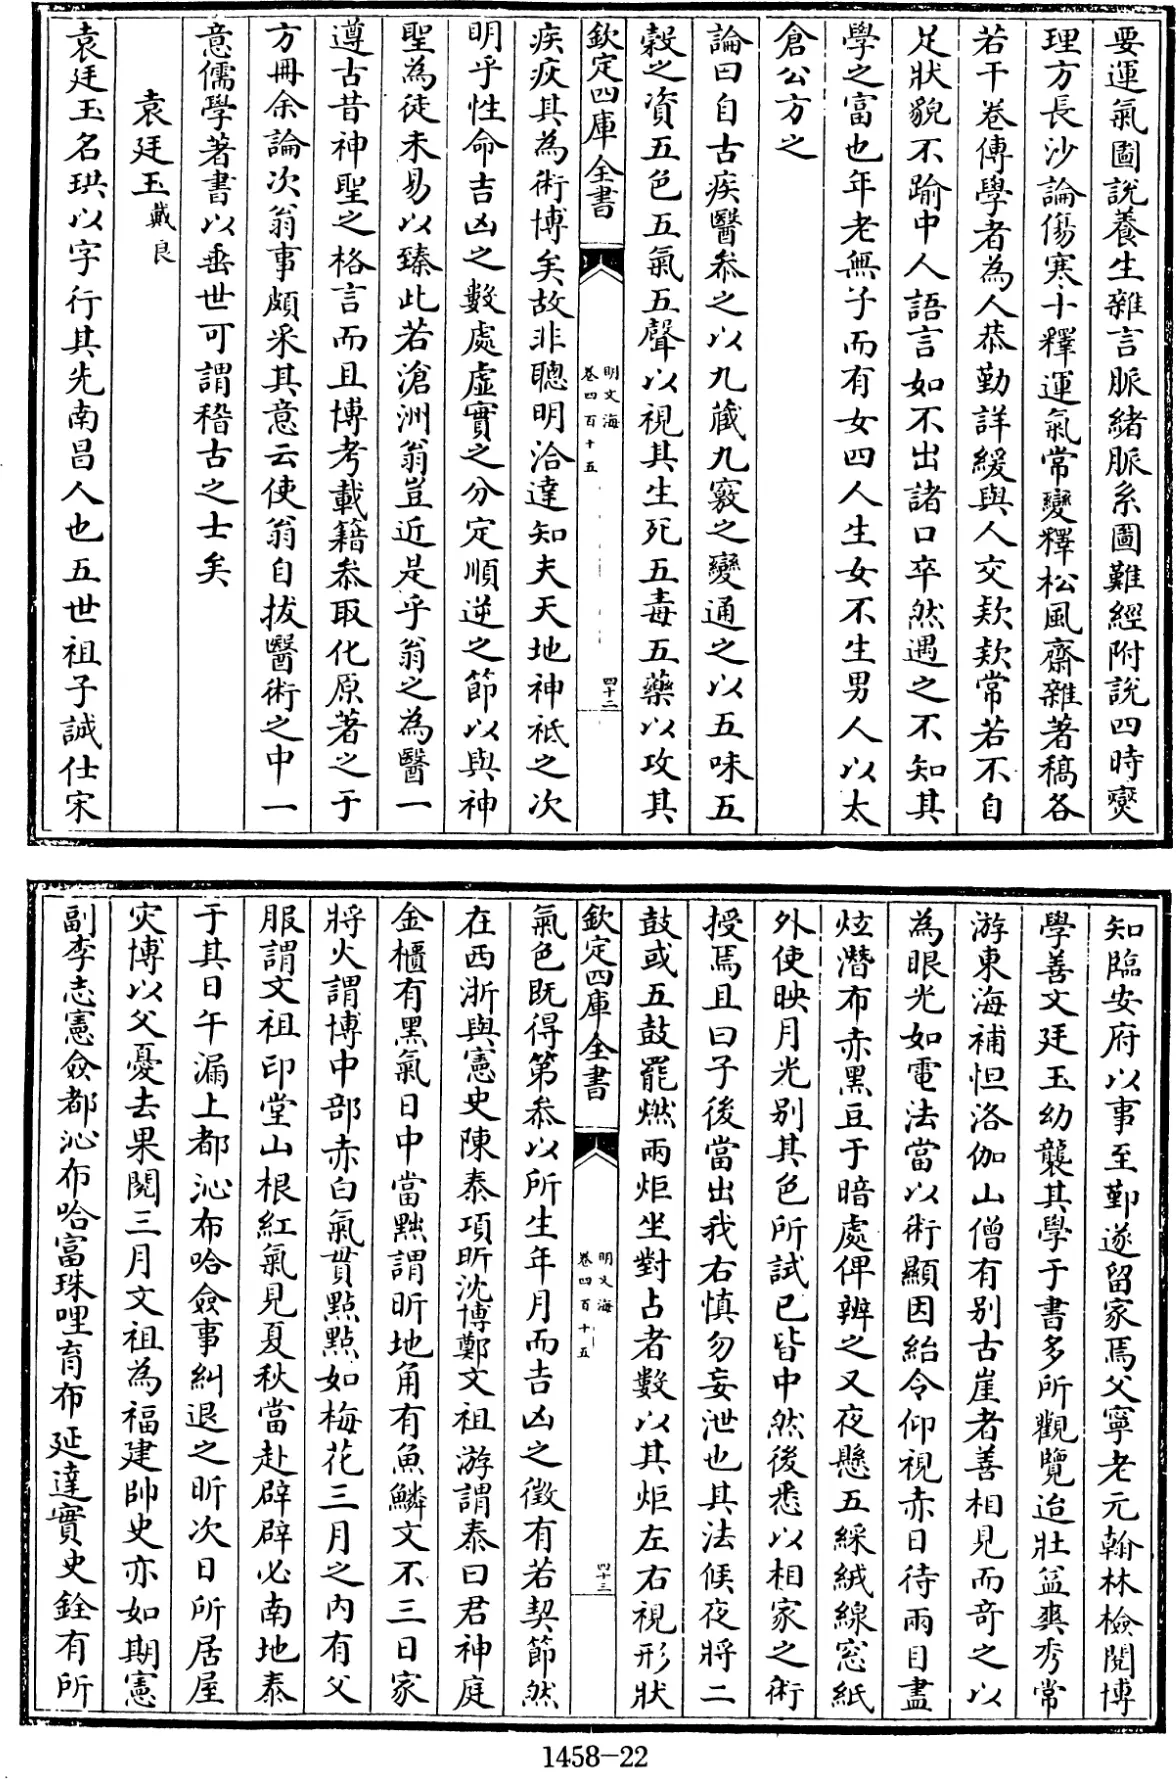 要運氣圖說養生雜言脈緒脈系圖難經附說四時爕
理方長沙論傷寒十釋運氣常變釋松風齋雜著稿各
若干卷傳學者為人恭勤詳緩與人交欵欵常若不自
足狀貌不踰中人語言如不出諸口卒然遇之不知其
學之富也年老無子而有女四人生女不生男人以太
倉公方之
論曰自古疾醫叅之以九蔵九竅之變通之以五味五
穀之資五色五氣五聲以視其生死五毒五藥以攻其
欽定四庫全書
明文海
卷四百十五
四十二
疾疢其為術博矣故非聰明洽達知夫天地神祗之次
明乎性命吉凶之數處虛實之分定順逆之節以與神
聖為徒未易以臻此若滄洲翁豈近是乎翁之為醫一
遵古昔神聖之格言而且博考載籍叅取化原著之于
方冊余論次翁事頗采其意云使翁自拔醫術之中一
意儒學著書以垂世可謂稽古之士矣
袁廷玉戴良
袁廷玉名珙以字行其先南昌人也五世祖子誠仕宋
知臨安府以事至鄞遂留家焉父寧老元翰林檢閱博
學善文廷玉幼襲其學于書多所觀覽迨壯益爽秀常
游東海補怛洛伽山僧有别古崖者善相見而奇之以
為眼光如電法當以術顯因紿令仰視赤日待兩目盡
炫潛布赤黒豆于暗處俾辨之又夜懸五綵絨線窓紙
外使映月光别其色所試已皆中然後悉以相家之術
授焉且曰子後當出我右慎勿妄泄也其法候夜將二
鼓或五鼓罷燃兩炬坐對占者數以其炬左右視形狀
欽定四庫全書
明文海
卷四百十五
四十三
氣色既得第叅以所生年月而吉凶之徵有若契節然
在西浙與憲史陳泰項昕沈博鄭文祖游謂泰曰君神庭
金櫃有黑氣日中當黜謂昕地角有魚鱗文不三日家
將火謂博中部赤白氣貫點點如梅花三月之内有父
服謂文祖印堂山根紅氣見夏秋當赴辟辟必南地泰
于其日午漏上都沁布哈僉事糾退之昕次日所居屋
灾博以父憂去果閱三月文祖為福建帥史亦如期憲
副李志憲僉都沁布哈富珠哩育布延達實史銓有所
1458-22